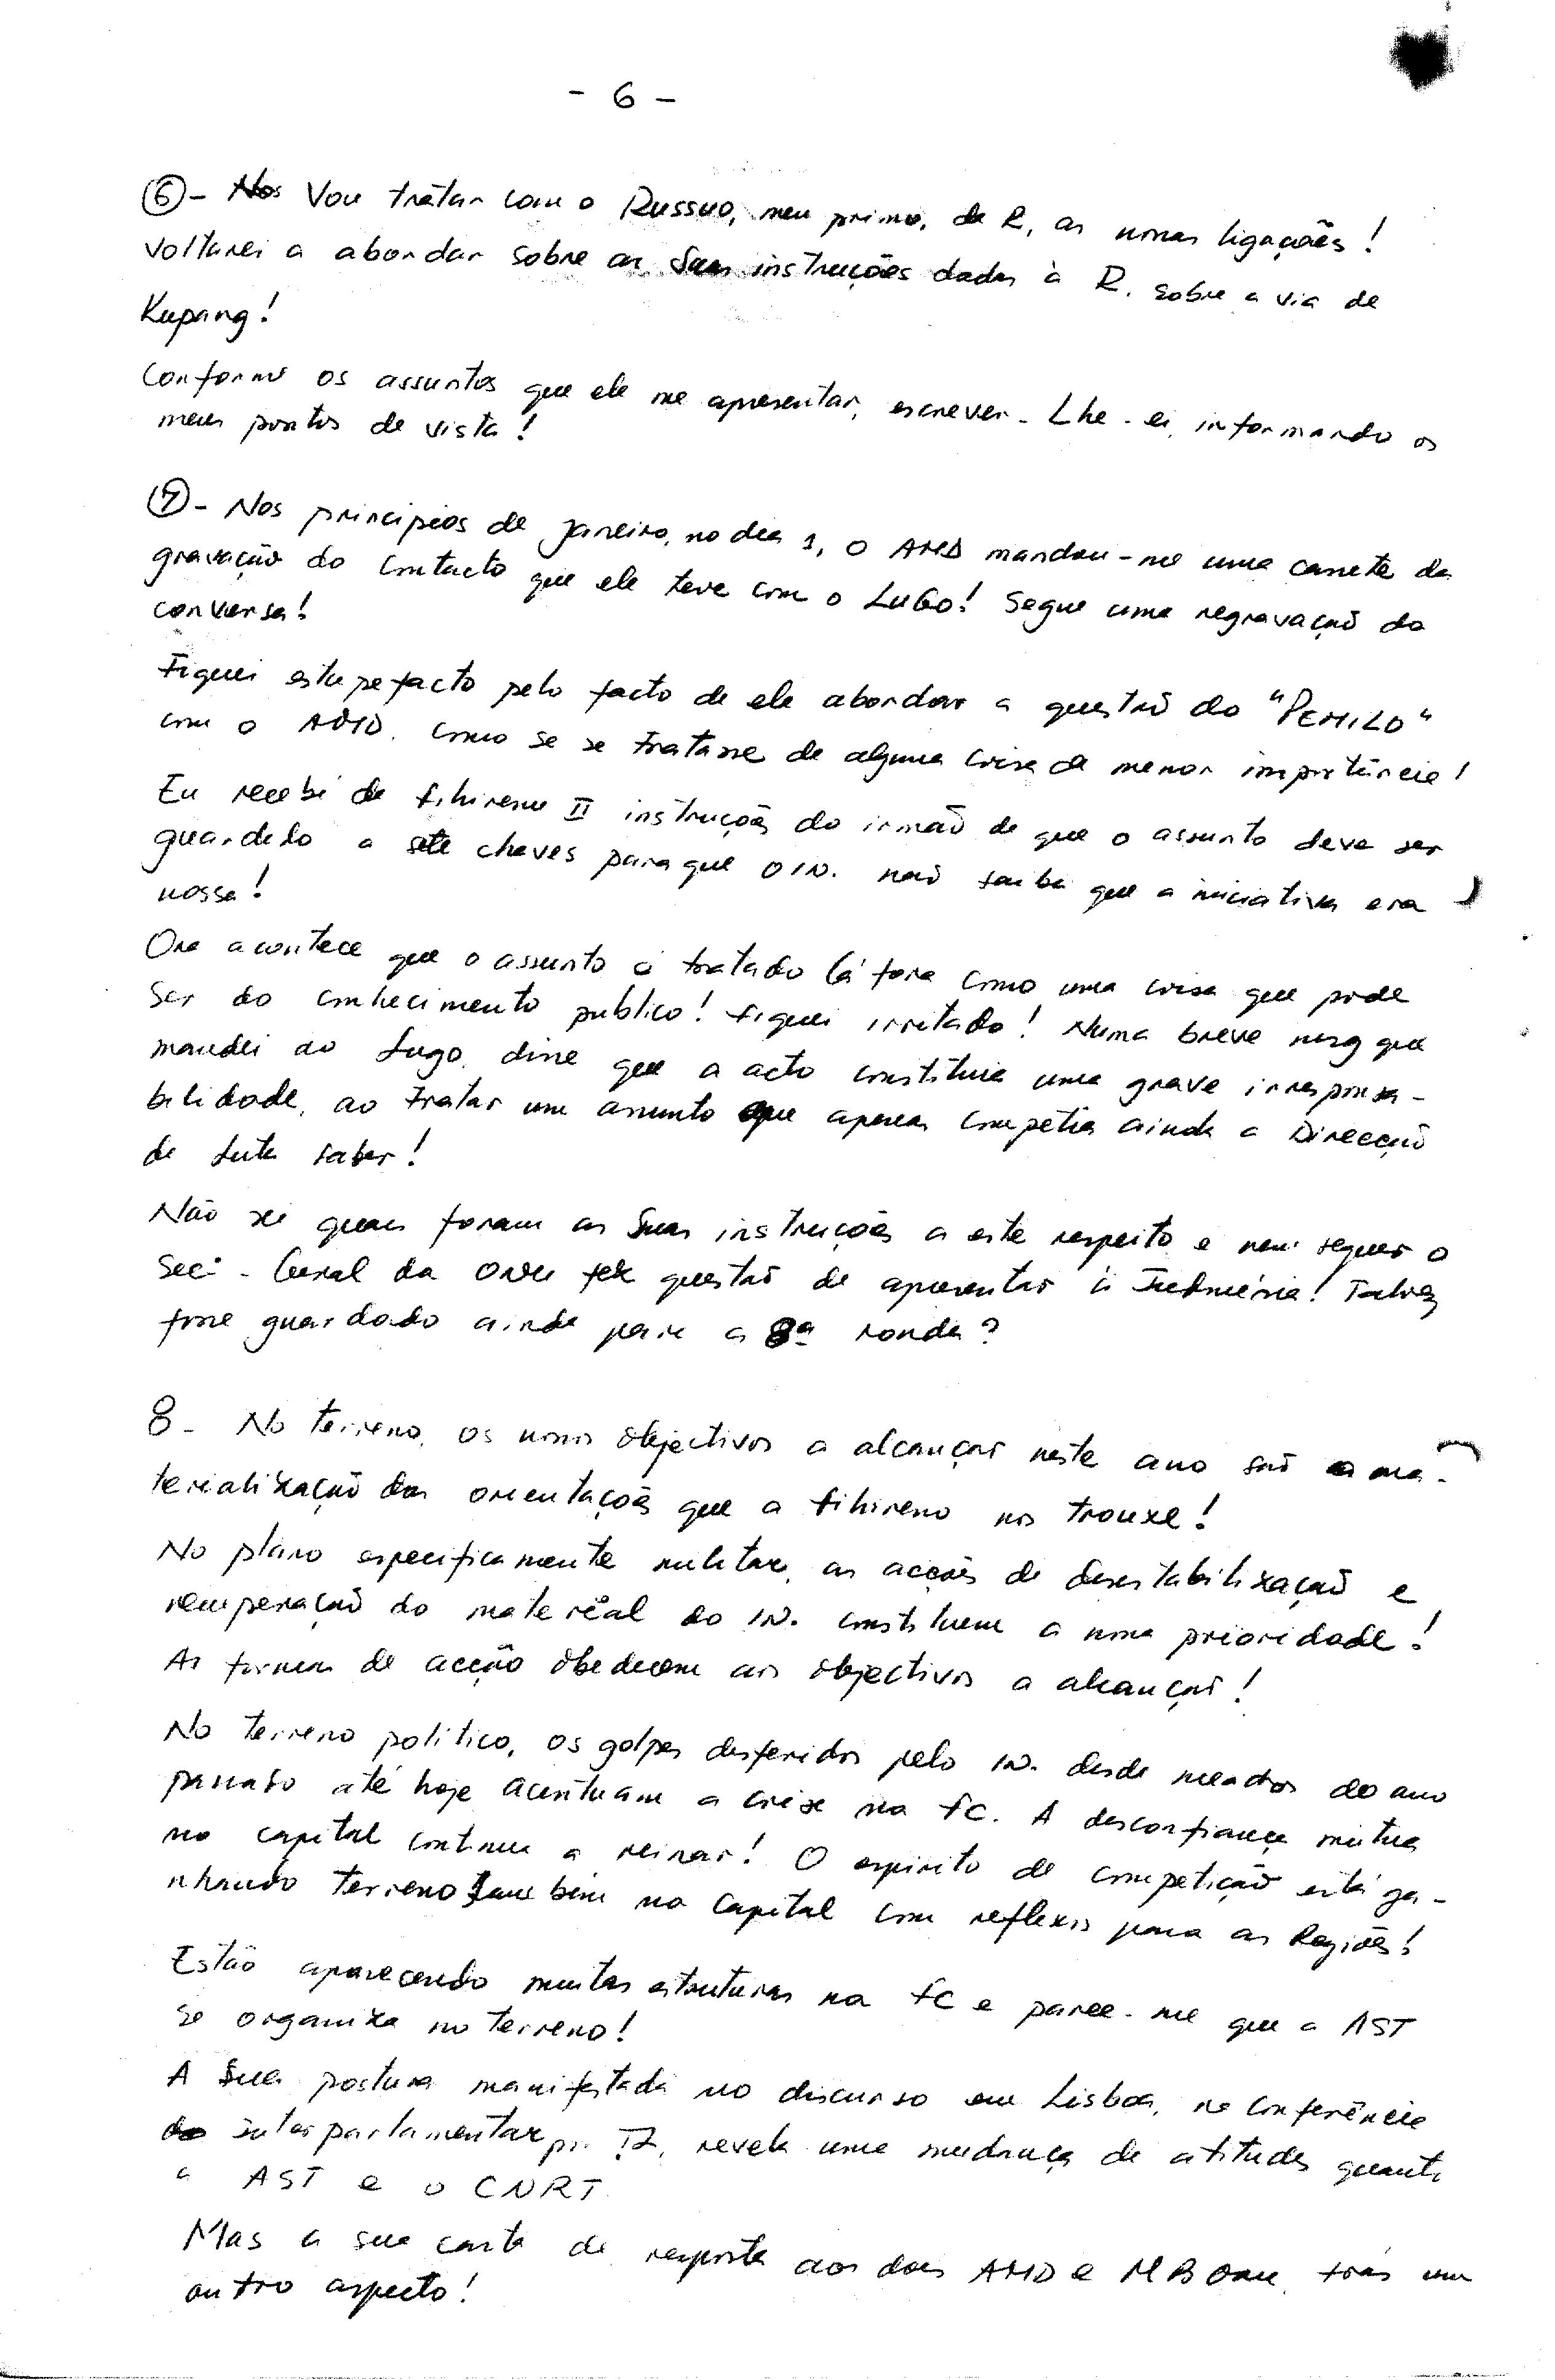 - 6 -
⑥ - Nos Vou tratar com o Russuo, meu primo, da R, as nossas ligações!
Voltarei a abordar sobre as Suas instruções dadas à R. sobre a via de
Kupang!
Conforme os assuntos que ele me apresentar, escrever-Lhe-ei, informando os
meus pontos de vista!
⑦ - Nos princípios de Janeiro, no dia 1, o AMD mandou-me uma cassete da
gravação do contacto que ele teve com o LUGO! Segue uma regravação da
conversa!
Fiquei estupefacto pelo facto de ele abordar a questão do "PEMILO"
com o AMD, como se se tratasse de alguma coisa de menor importância!
Eu recebi de fihireno II instruções do irmão de que o assunto deve ser
guardado a sete chaves para que o IN. não saiba que a iniciativa era
nossa!
Ora acontece que o assunto é tratado lá fora como uma coisa que pode
ser do conhecimento publico! Fiquei irritado! Numa breve msg que
mandei ao Lugo, disse que o acto constituia uma grave irresponsa-
bilidade, ao tratar um assunto que apenas competia ainda a Direcção
da Luta saber!
Não sei quais foram as Suas instruções a este respeito e nem sequer o
Sec. Geral da ONU fez questão de apresentar à Indonésia! Talvez
fosse guardado ainda para a 8ª ronda?
8 - No terreno, os nossos objectivos a alcançar neste ano são a ma-
terialização das orientações que a fihireno nos trouxe!
No plano especificamente militar, as acções de desestabilização e
recuperação do material do IN. constituem a nossa prioridade!
As formas de acção obedecem aos objectivos a alcançar!
No terreno político, os golpes desferidos pelo IN. desde meados do ano
passado até hoje acentuam a crise na FC. A desconfiança mútua
na capital continua a reinar! O espirito de competição está ga-
nhando terreno também na capital com reflexos para as Regiões!
Estão aparecendo muitas estruturas na FC e parece-me que a AST
se organiza no terreno!
A Sua postura manifestada no discurso em Lisboa, na conferência
interparlamentar pr. TL, revela uma mudança de atitudes quanto
a AST e o CNRT.
Mas a sua carta de resposta aos dois AMD e MB trás um
outro aspecto!